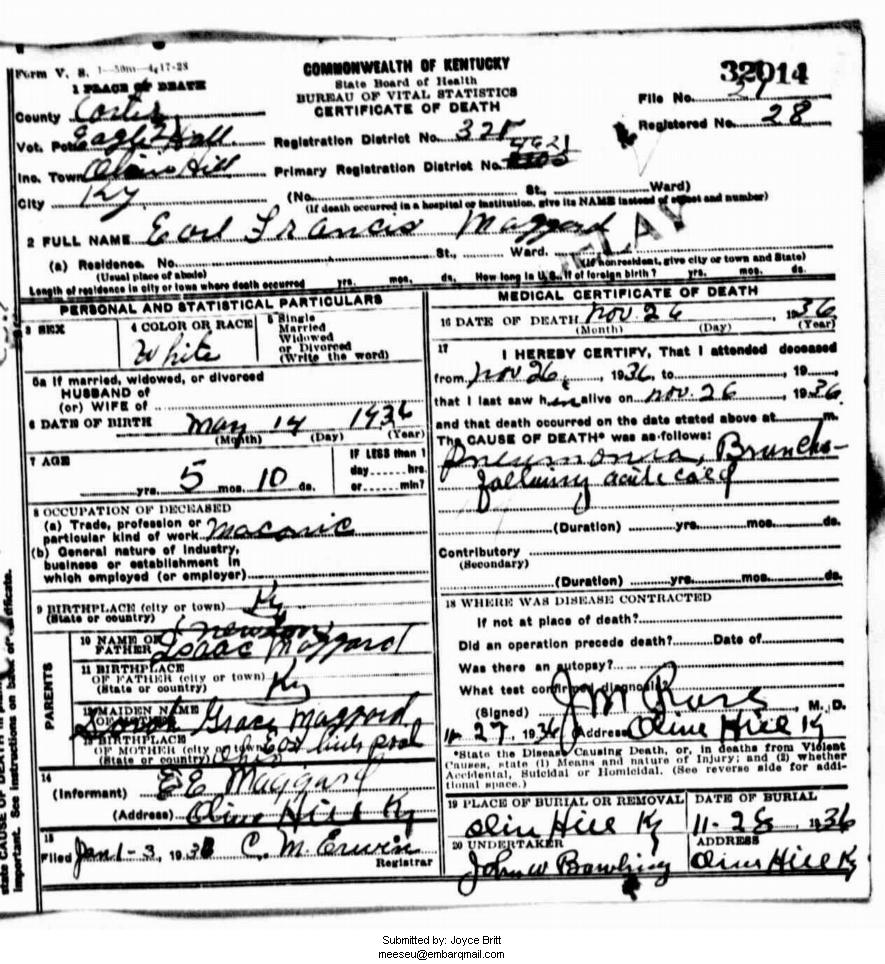 Form V. S. 1—50m—4-17-28
COMMONWEALTH OF KENTUCKY
State Board of Health
BUREAU OF VITAL STATISTICS
CERTIFICATE OF DEATH
32014
File No.
Registered No. 28
1 PLACE OF DEATH
County Carter
Vot. Pct.
Registration District No. 325
Inc. Town Olive Hill
Primary Registration District No. 4621
City Ky
(No. St., Ward)
(If death occurred in a hospital or institution, give its NAME instead of street and number)
2 FULL NAME Earl Francis Maggard
DELAY
(a) Residence. No. St., Ward.
(Usual place of abode)
(If nonresident, give city or town and State)
Length of residence in city or town where death occurred yrs. mos. ds. How long in U.S., if of foreign birth? yrs. mos. ds.
PERSONAL AND STATISTICAL PARTICULARS
3 SEX
4 COLOR OR RACE
White
5 Single
Married
Widowed
or Divorced
(Write the word)
5a If married, widowed, or divorced
HUSBAND of
(or) WIFE of
6 DATE OF BIRTH May 14 1936
(Month) (Day) (Year)
7 AGE
yrs. 5 mos. 10 ds.
IF LESS than 1
day......hrs.
or......min?
8 OCCUPATION OF DECEASED
(a) Trade, profession or
particular kind of work
(b) General nature of industry,
business or establishment in
which employed (or employer)
9 BIRTHPLACE (city or town) Ky
(State or country)
PARENTS
10 NAME OF
FATHER Isaac Newton Maggard
11 BIRTHPLACE
OF FATHER (city or town)
(State or country) Ky
12 MAIDEN NAME
OF MOTHER Grace Maggard
13 BIRTHPLACE
OF MOTHER (city or town)
(State or country) Ohio East Liverpool
14
(Informant) E E Maggard
(Address) Olive Hill Ky
15
Filed Jan 1-3, 193 C. M. Erwin
Registrar
MEDICAL CERTIFICATE OF DEATH
16 DATE OF DEATH Nov. 26, 1936
(Month) (Day) (Year)
17
I HEREBY CERTIFY, That I attended deceased
from Nov 26, 1936, to , 19
that I last saw him alive on Nov. 26, 1936
and that death occurred on the date stated above at m.
The CAUSE OF DEATH* was as follows:
Pneumonia, Broncho-
following acute cold
(Duration) yrs. mos. ds.
Contributory
(Secondary)
(Duration) yrs. mos. ds.
18 WHERE WAS DISEASE CONTRACTED
If not at place of death?
Did an operation precede death? Date of
Was there an autopsy?
What test confirmed diagnosis?
(Signed) J M Rose, M. D.
11-27, 1936 Address Olive Hill Ky
*State the Disease Causing Death, or, in deaths from Violent
Causes, state (1) Means and nature of Injury; and (2) whether
Accidental, Suicidal or Homicidal. (See reverse side for addi-
tional space.)
19 PLACE OF BURIAL OR REMOVAL
Olive Hill Ky
DATE OF BURIAL
11-28, 1936
20 UNDERTAKER
John W Bowling
ADDRESS
Olive Hill Ky
Submitted by: Joyce Britt
meeseu@embarqmail.com